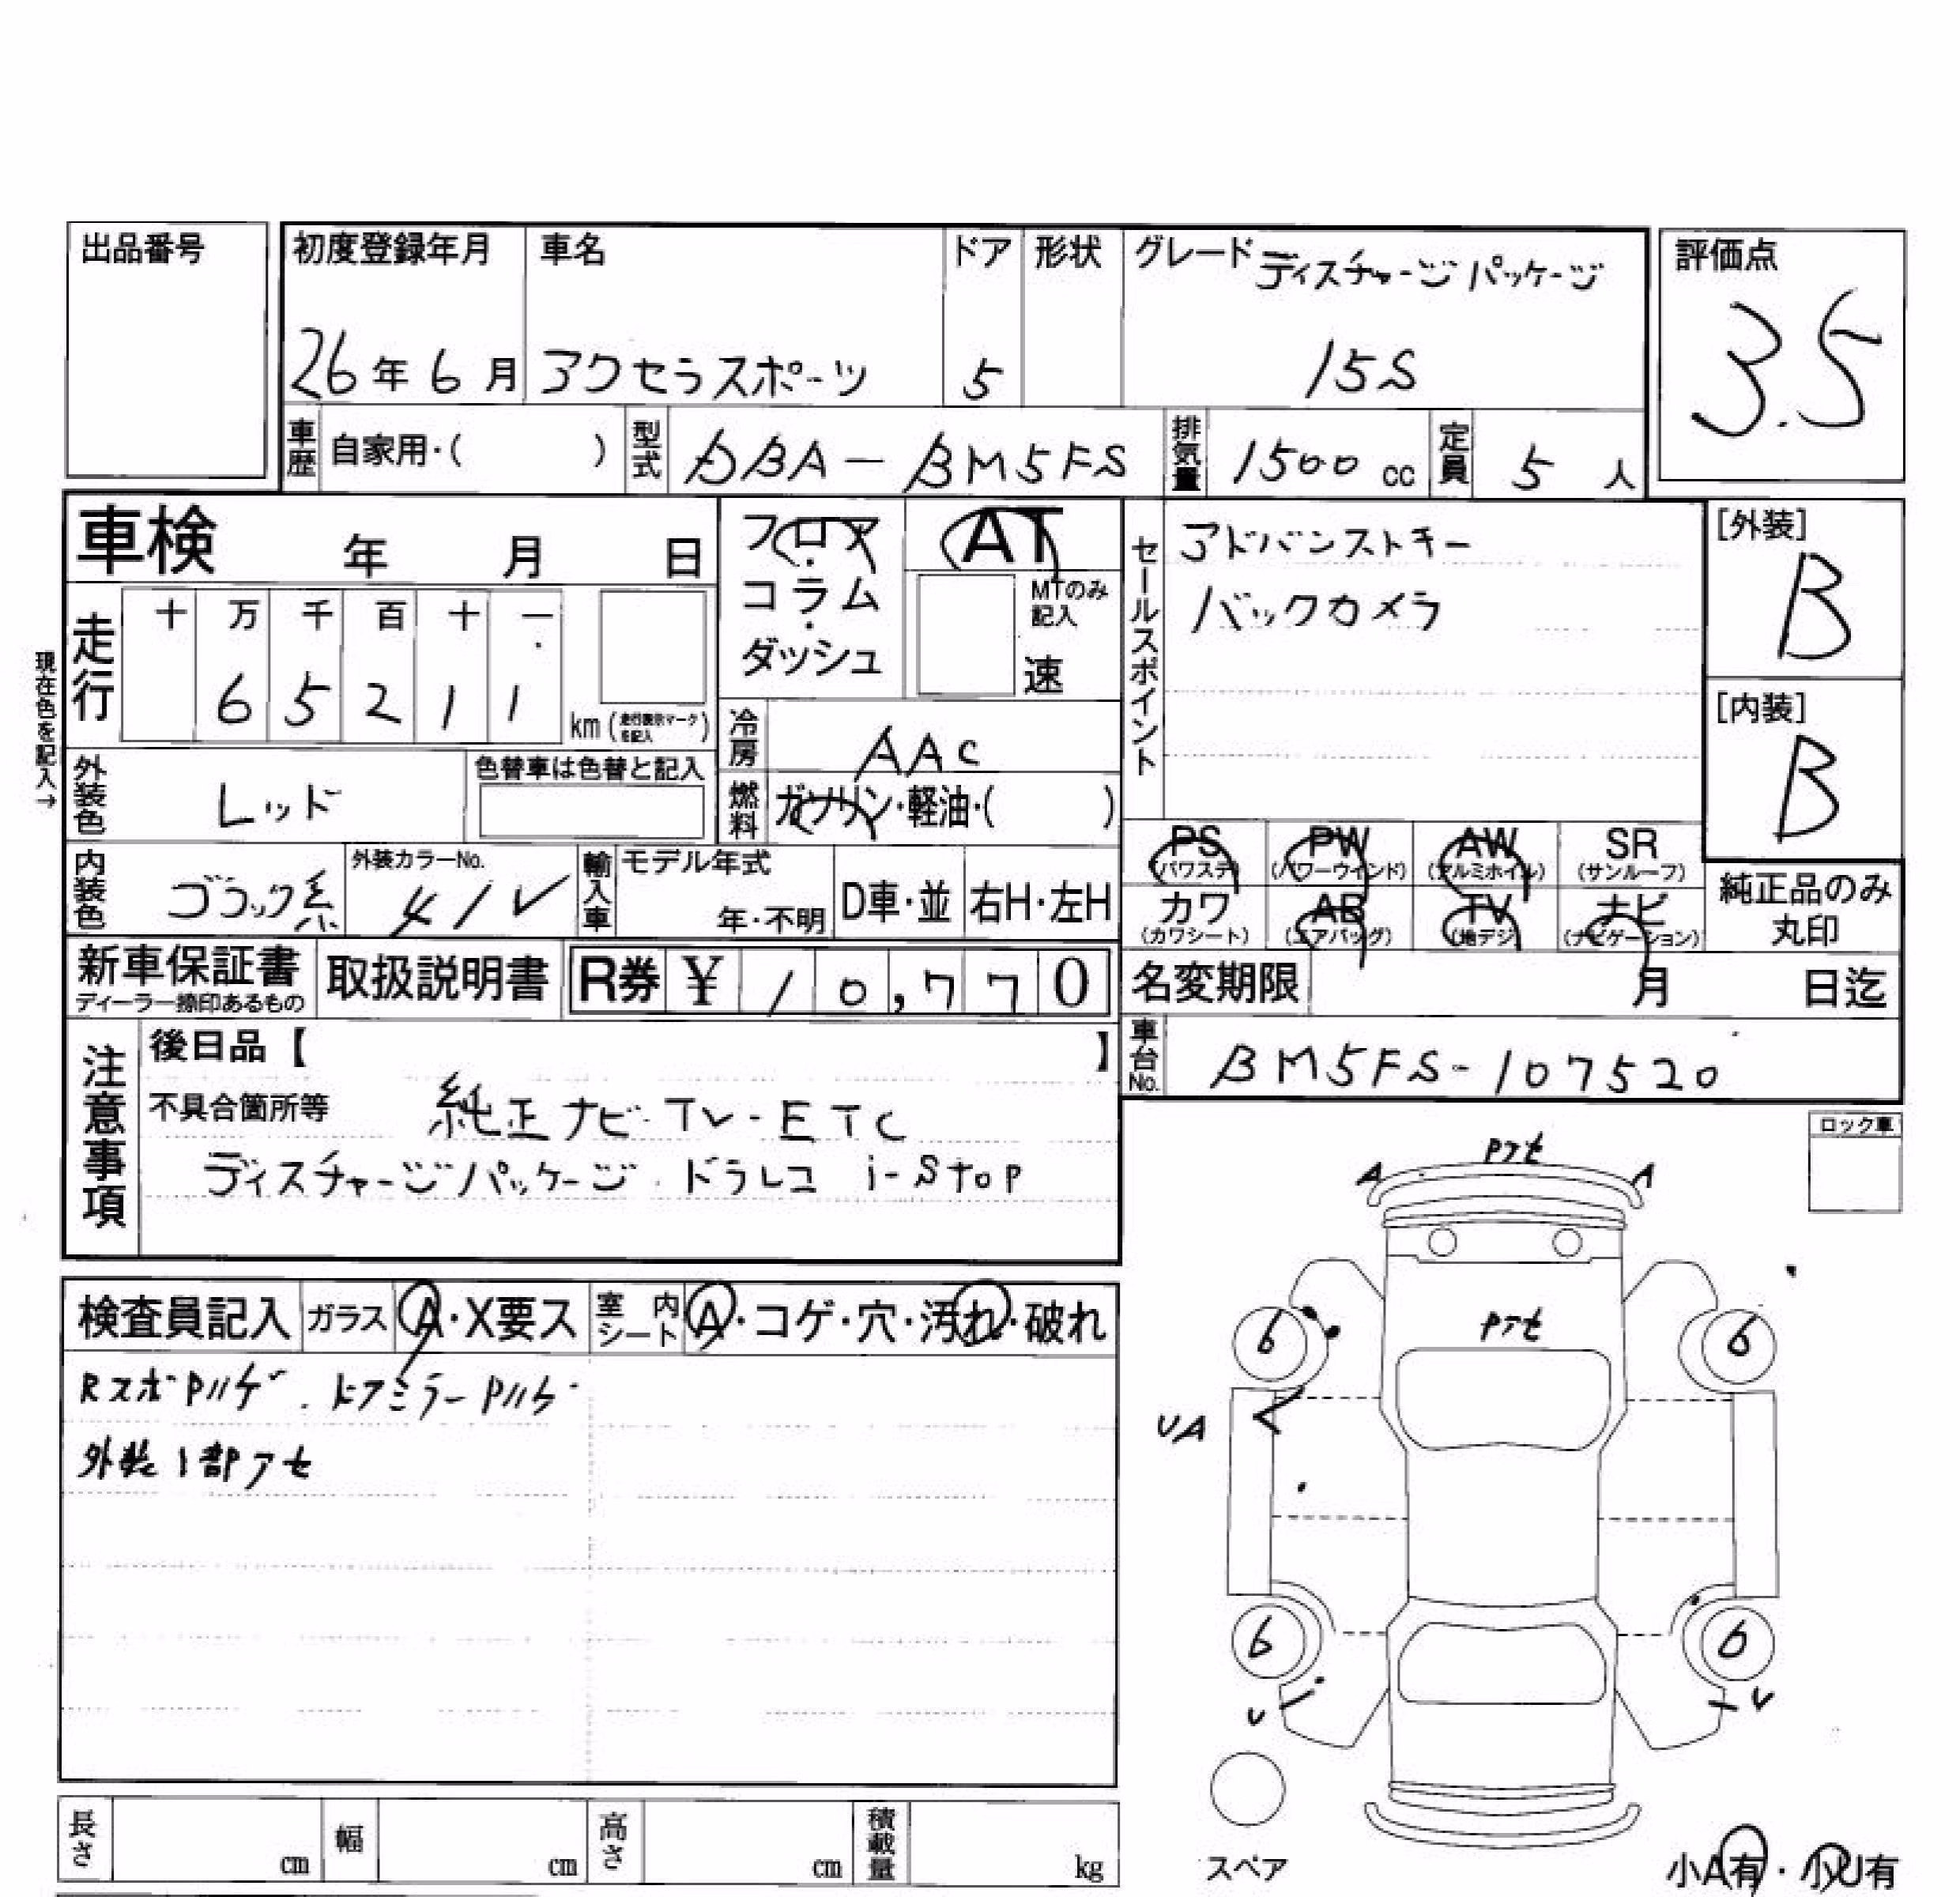 出品番号
初度登録年月 車名 ドア 形状 グレード ディスチャージパッケージ 評価点
26年6月 アクセラスポーツ 5 15S 3.5
車歴 自家用・( ) 型式 DBA-BM5FS 排気量 1500cc 定員 5人
車検 年 月 日
フロア・コラム・ダッシュ AT
MTのみ記入 速
セールスポイント アドバンストキー
バックカメラ
[外装] B
[内装] B
現在色を記入→
走行 十 万 千 百 十 一
6 5 2 1 1 km (走行表示マークを記入)
冷房 AAC
外装色 レッド 色替車は色替と記入
燃料 ガソリン・軽油・( )
PS (パワステ) PW (パワーウィンド) AW (アルミホイル) SR (サンルーフ)
カワ (カワシート) AB (エアバッグ) TV (地デジ) ナビ (ナビゲーション)
純正品のみ丸印
内装色 ブラック系 外装カラーNo. 41V 輸入車 モデル年式 年・不明 D車・並 右H・左H
新車保証書 ディーラー捺印あるもの 取扱説明書 R券 ¥10,770
名変期限 月 日迄
車台No. BM5FS-107520
注意事項 後日品【 】
不具合箇所等 純正ナビ・TV・ETC
ディスチャージパッケージ・ドラレコ i-stop
ロック車
検査員記入 ガラス A・X要ス 室内シート A・コゲ・穴・汚れ・破れ
RスポPハゲ・ドアミラーPハゲ
外装1部アセ
Pアセ
A A
Pアセ
6 6
UA
6 6
U U
スペア
小A有・小U有
長さ cm 幅 cm 高さ cm 積載量 kg